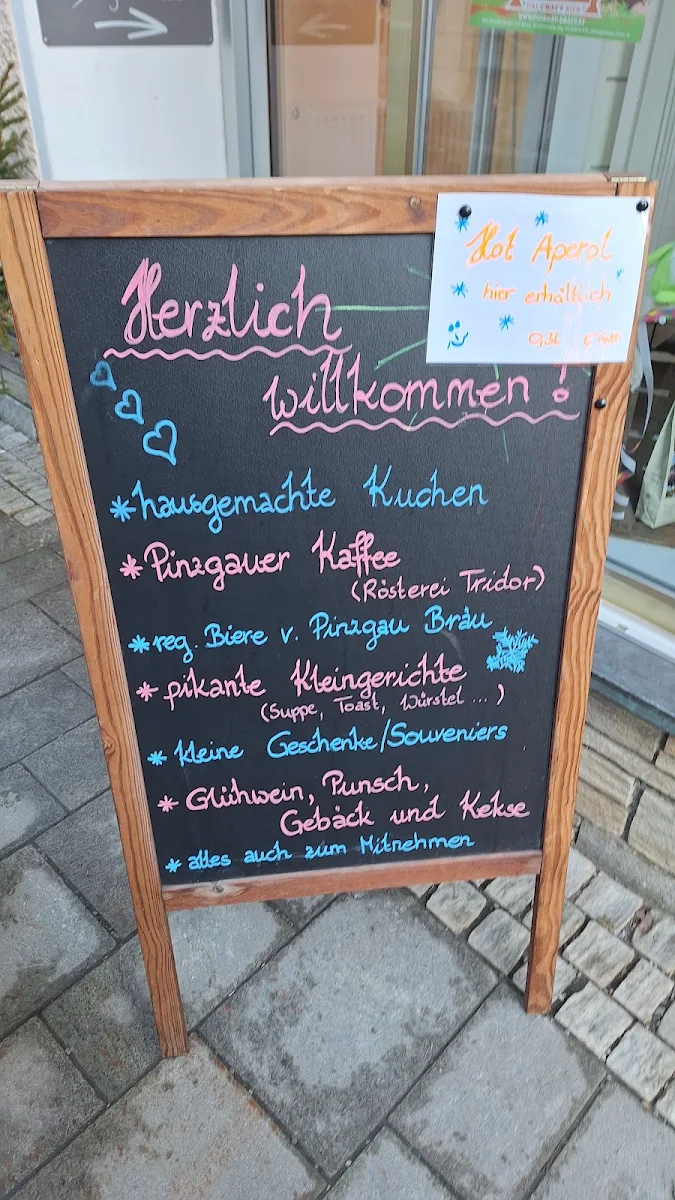 Herzlich
willkommen!
Hot Aperol
hier erhältlich
0,3l €
*hausgemachte Kuchen
*Pinzgauer Kaffee
(Rösterei Tridor)
*reg. Biere v. Pinzgau Bräu
*pikante Kleingerichte
(Suppe, Toast, Würstel ... )
*kleine Geschenke/Souveniers
*Glühwein, Punsch,
Gebäck und Kekse
*alles auch zum Mitnehmen